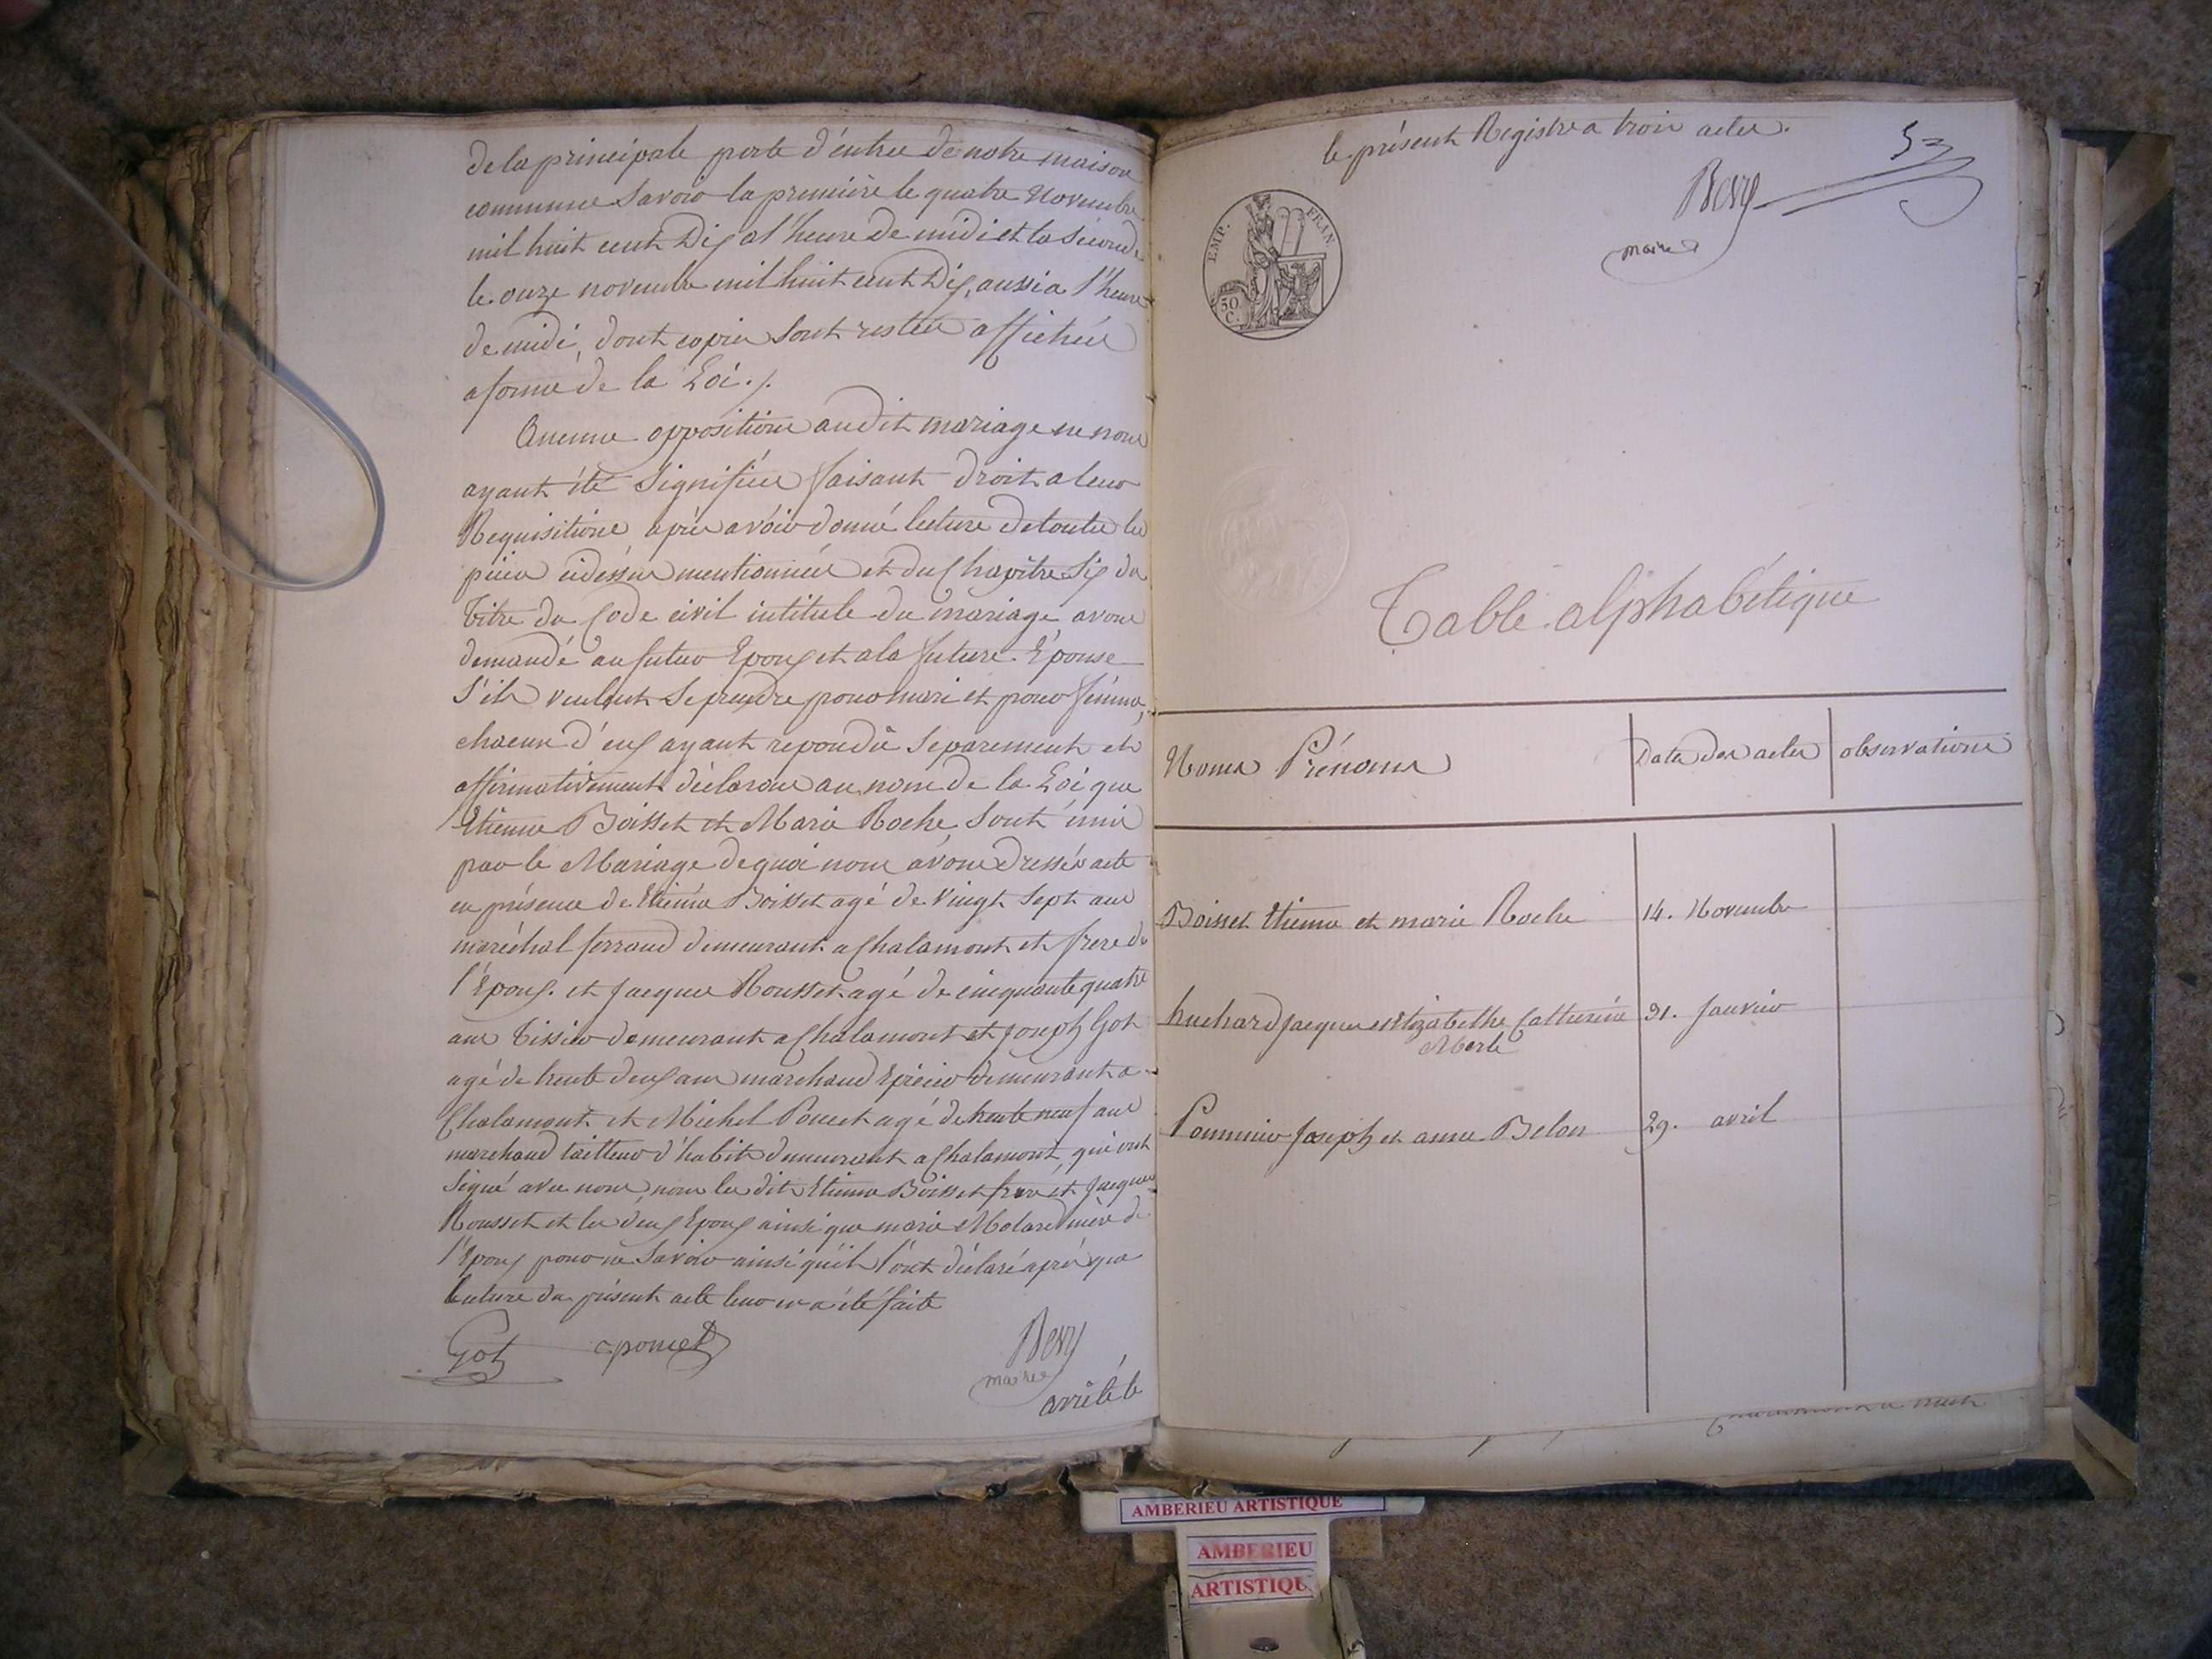 de la principale porte d'entrée de notre maison
commune Savoir la première le quatre Novembre
mil huit cent Dix a l'heure de midi et la Séconde
le onze novembre mil huit cent Dix, aussi a l'heure
de midi, dont copies Sont restées affichées
a forme de la Loi ./.
Aucune opposition audit mariage ne nous
ayant été Signifiée faisant droit a leur
Requisitione après avoir donné lecture de toutes les
pièces cidéssus mentionnées et du Chapître Six du
Titre du Code civil intitule du mariage avons
demandé au futur Epoux et a la future Épouse
S'ils veulent Se prendre pour mari et pour fémme,
chacun d'eux ayant repondû Séparement et
affirmativement déclarons au nom de la Loi que
Etienne Boisset et Marie Roche Sont unis
par le Mariage de quoi nous avons dressés acte
en présence de Etiénne Boisset agé de Vingt Sept ans
maréchal ferrand demeurant a Chalamont et frere de
l'Epoux. et Jacques Rousset agé de cinquante quatre
ans Tissier demeurant a Chalamont et Joseph Got
agé de trente deux ans marchand Epicier demeurant a
Chalamont et Michel Poncet agé de trente neuf ans
marchand tailleur d'habits demeurant a Chalamont, qui ont
Signé avec nous, non les dits Etienne Boisset frere et Jacques
Rousset et les deux Epoux ainsi que marie Molard mère de
l'Epoux pour ne Savoir ainsi qu'ils l'ont déclaré après que
lecture du présent acte leur en a été faite
Got poncet Bery
maire
arrêté le
le présent Registre a trois actes.
52
Bery
maire
EMP. FRAN.
50
C.
Table alphabétique
Noms Prénoms Date des actes observations
Boisset Etienne et marie Roche 14. Novembre
huchard Jacques et Elizabethe Catherine 31. Janvier
Merle
Pommier Joseph et anne Belon 29. avril
AMBERIEU ARTISTIQUE
AMBERIEU
ARTISTIQU